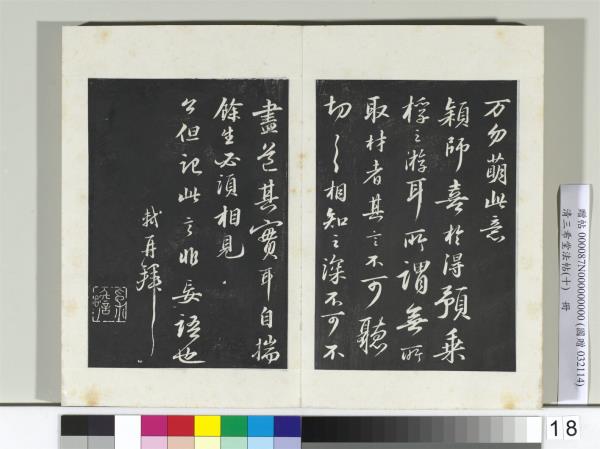 万勿萌此意
穎師喜於得預乘
桴之游耳所謂無所
取材者其言不可聽
切切相知之深不可不
盡道其實耳自揣
餘生必須相見
公但記此言非妄語也
軾再拜
贈帖 000087N000000000 (國贈 032114)
清三希堂法帖(十) 冊
18